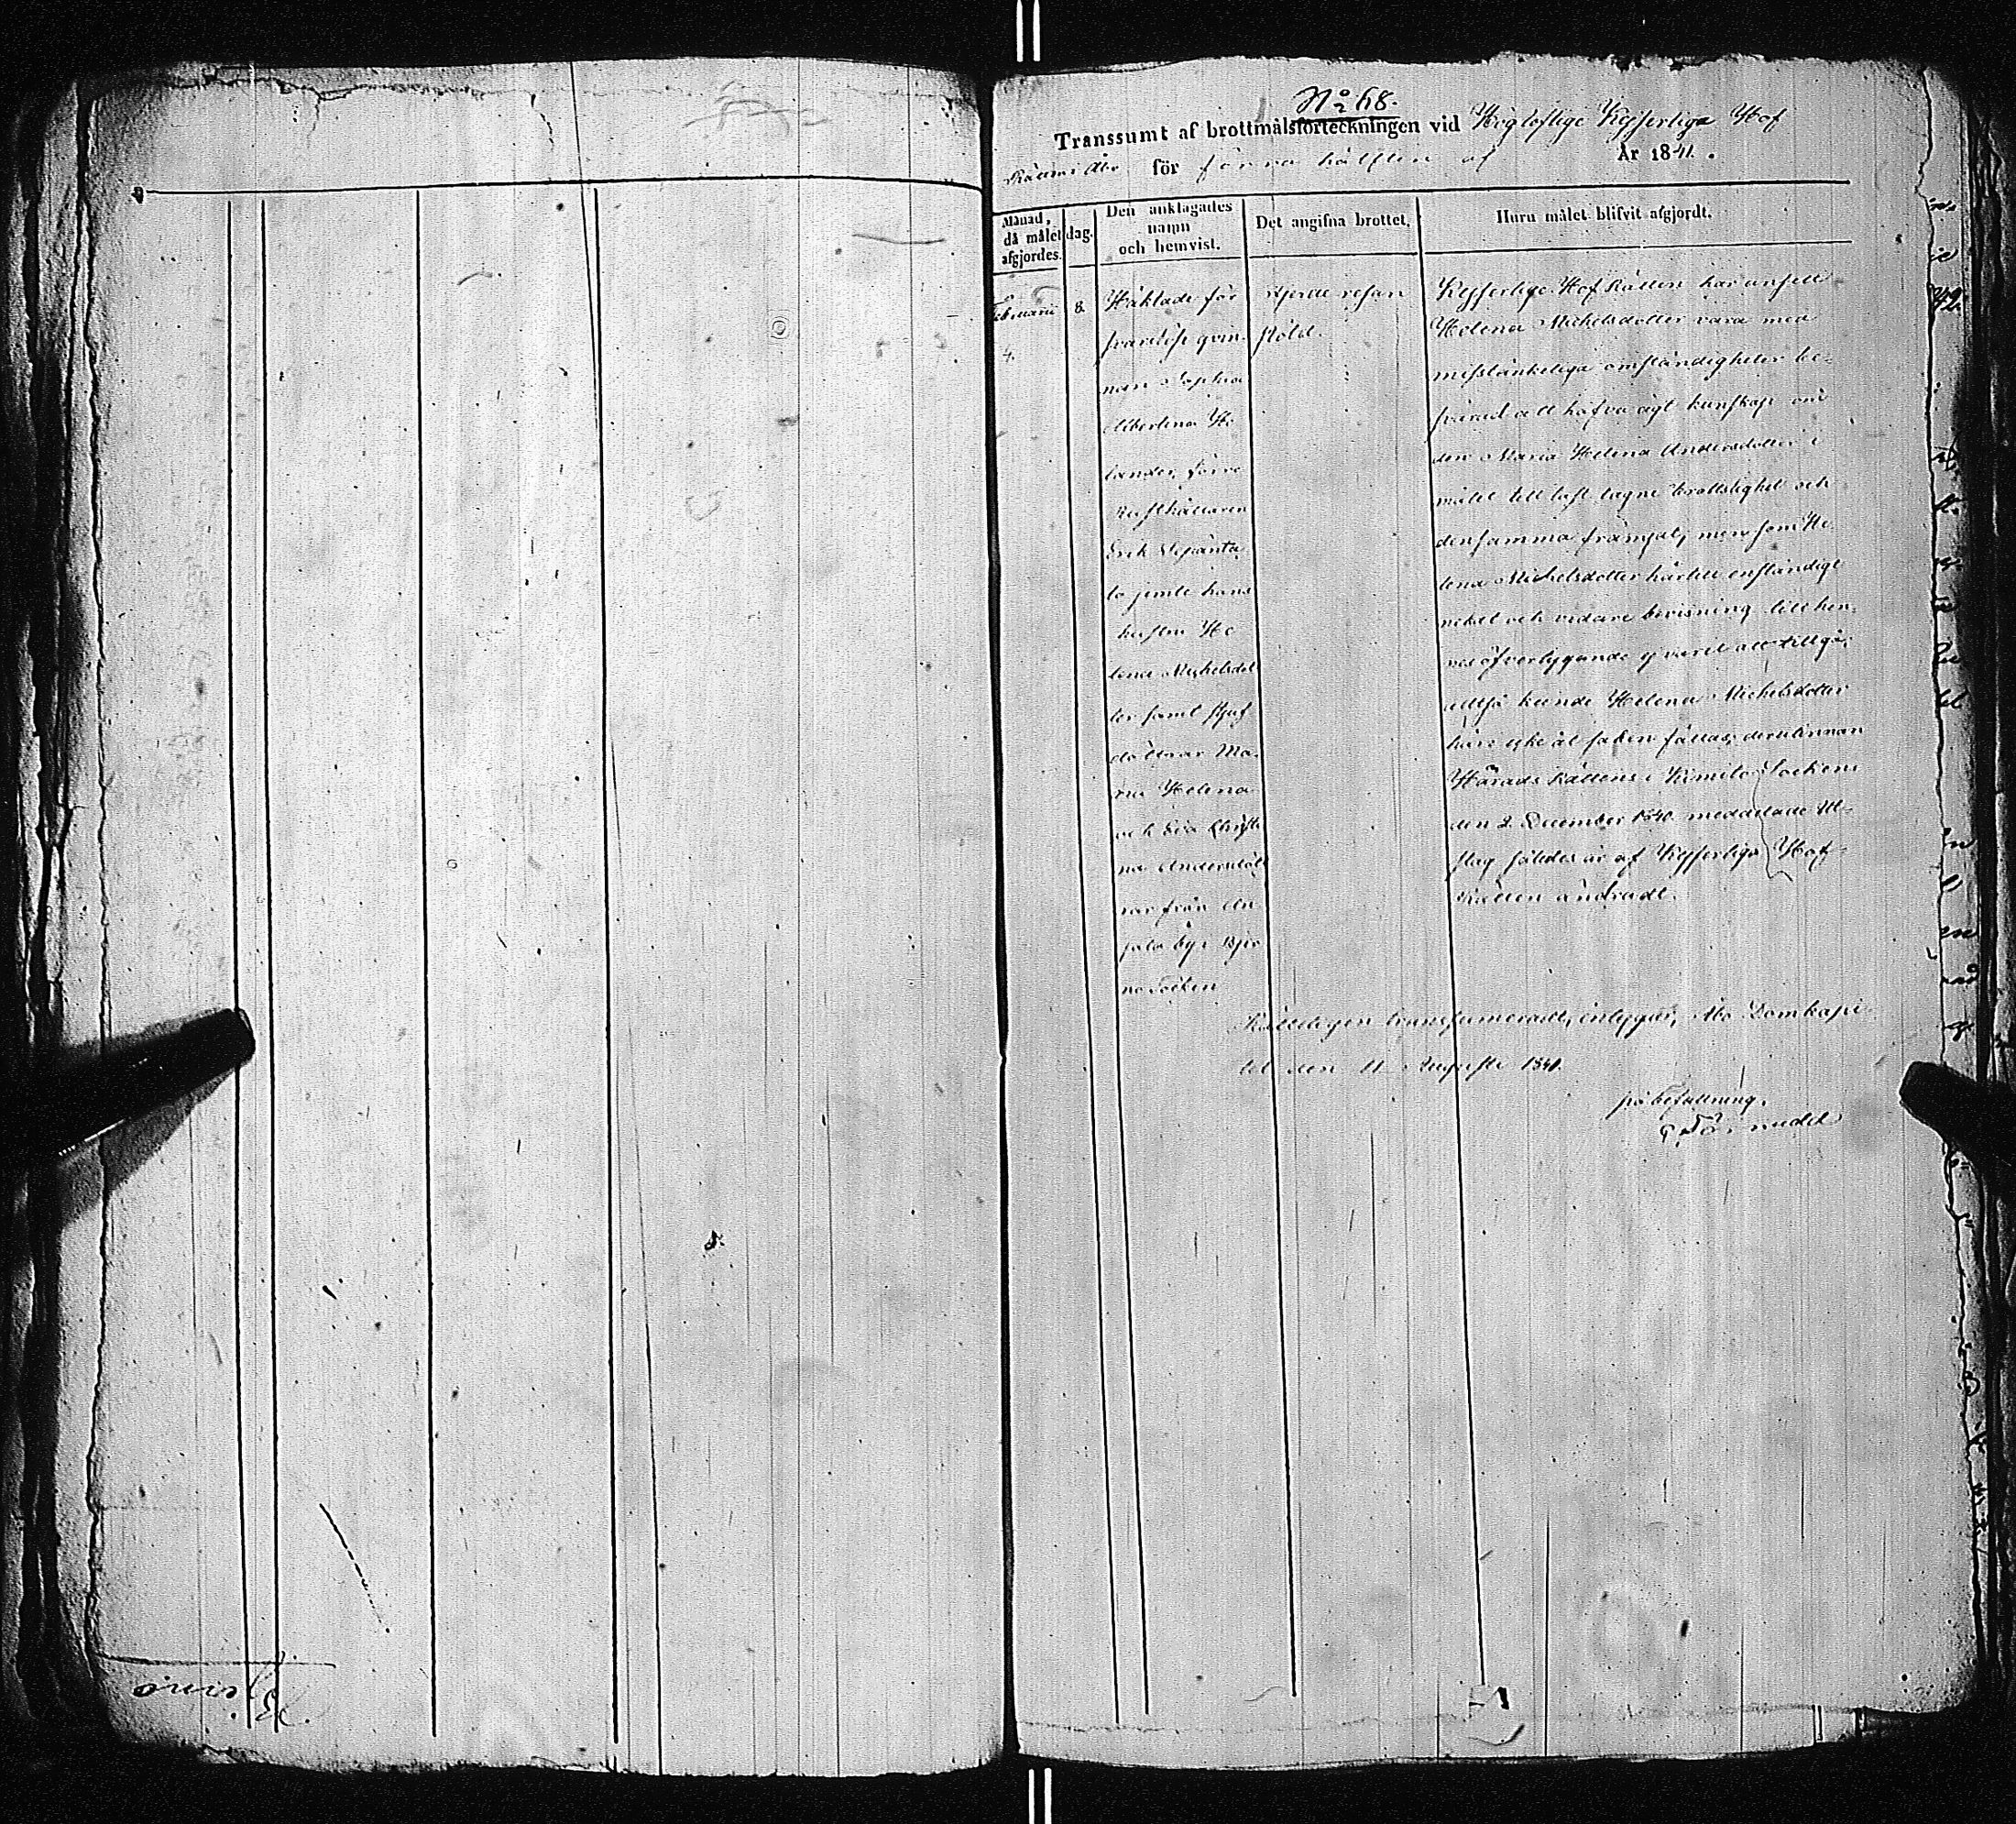 No 68.
Transsumt af brottmålsförteckningen vid Högloflige Kejserliga Hof
Rätten i Åbo för förra hälften af År 1841.
Månad, då målet afgjordes.
dag.
Den anklagades namn och hemvist.
Det angifna brottet.
Huru målet blifvit afgjordt.
Februarii
4.
8.
Häktade för
svarslösa qvin-
nan Sophia
Albertina He
lander, förre
Rusthållaren
Erik
la jemte hans
hustru He
lena Michelsdot
ter samt styf
döttrar Ma-
ria Helena
och Eva Christi
na Andersdött
rar från An
jala by i Bjer
no Socken
fjerde resan
stöld.
Kejserliga Hof Rätten har ansett
Helena Michelsdotter vara med
misstänkeliga omständigheter be-
svärad att hafva ägt kunskap om
den Maria Helena Andersdotter i
målet till last lagne brottslighet och
densamma främjat, men som He
lena Michelsdotter härtill enständigt
nekat och vidare bevisning till hen-
nes öfvertygande ej varit att tillgå;
alltså kunde Helena Michelsdotter
häre icke åt saken fällas; derutinnan
Härads Rättens i Kimito Socken
den 2 December 1840 meddelade Ut-
slag således är af Kejserliga Hof-
Rätten ändradt.
Rätteligen transsumeradt, intygar, Åbo Domkapi-
tel den 11 Augusti 1841.
på befallning.
G. Törnudd
Bjerno